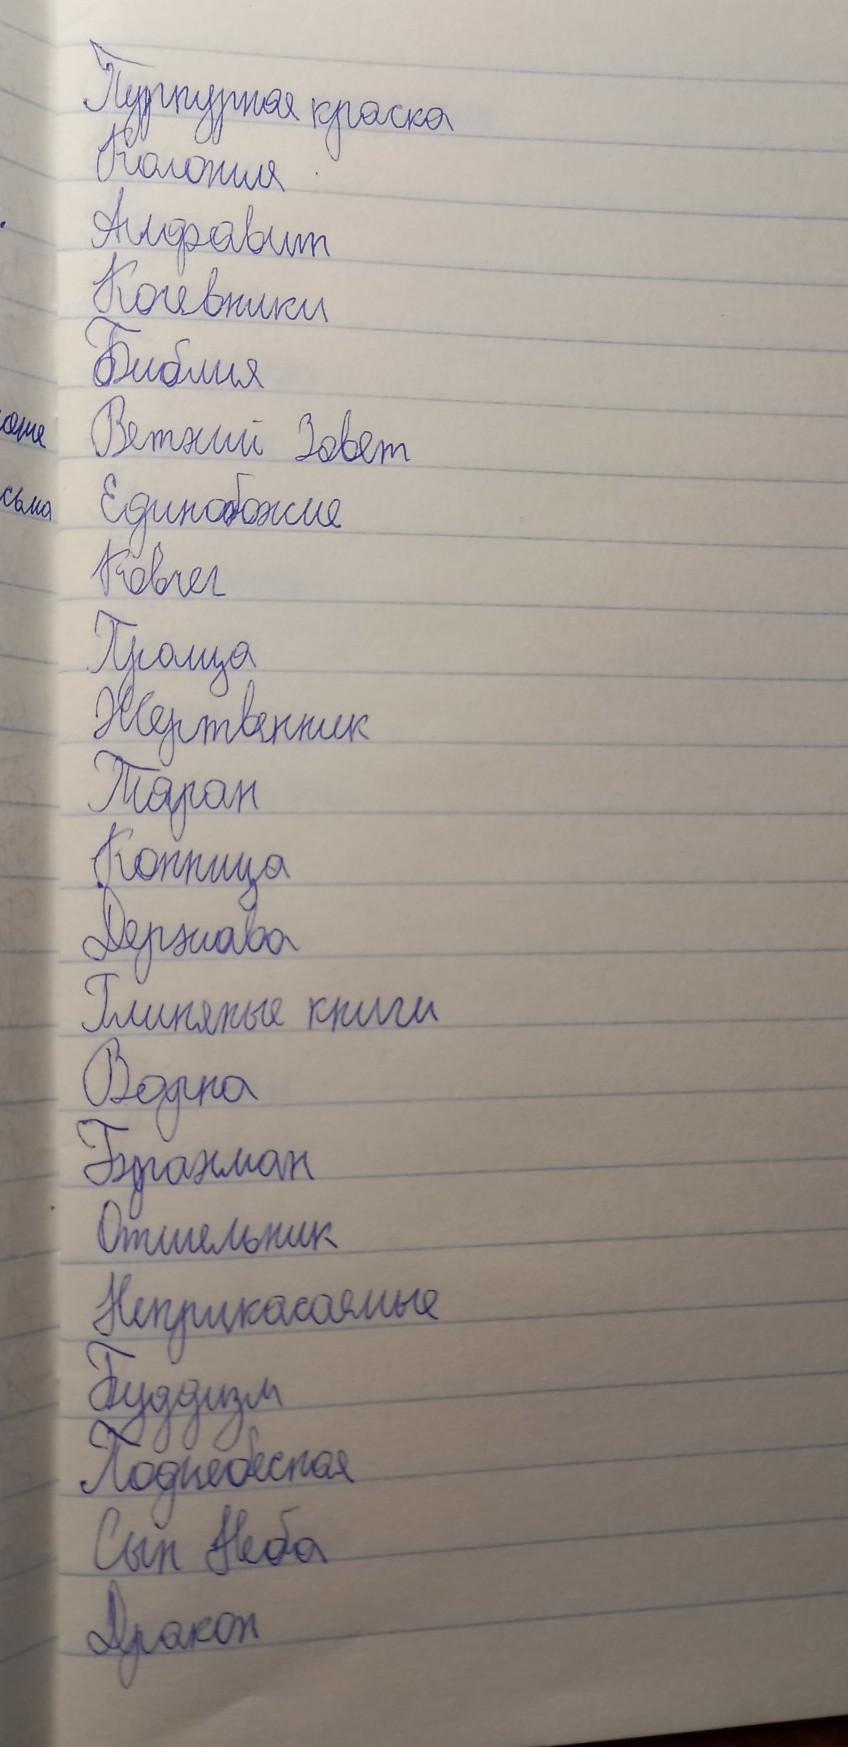 Пурпурная краска
Колония
Алфавит
Кочевники
Библия
Ветхий Завет
Единобожие
Ковчег
Троица
Жертвенник
Таран
Конница
Держава
Глиняные книги
Варна
Брахман
Отшельник
Неприкасаемые
Буддизм
Поднебесная
Сын Неба
Дракон